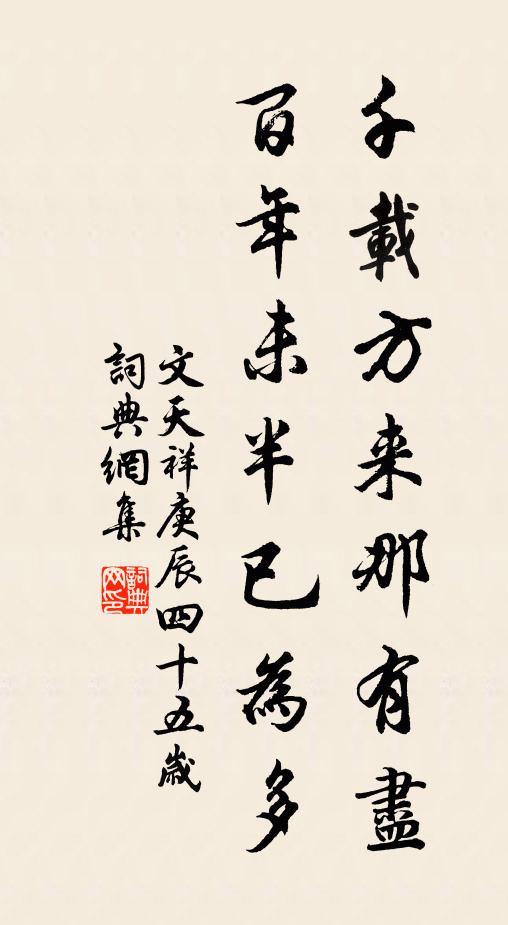 千載方来那有盡
百年未半已為多
文天祥庚辰四十五歲
詞典網集
詞典网印